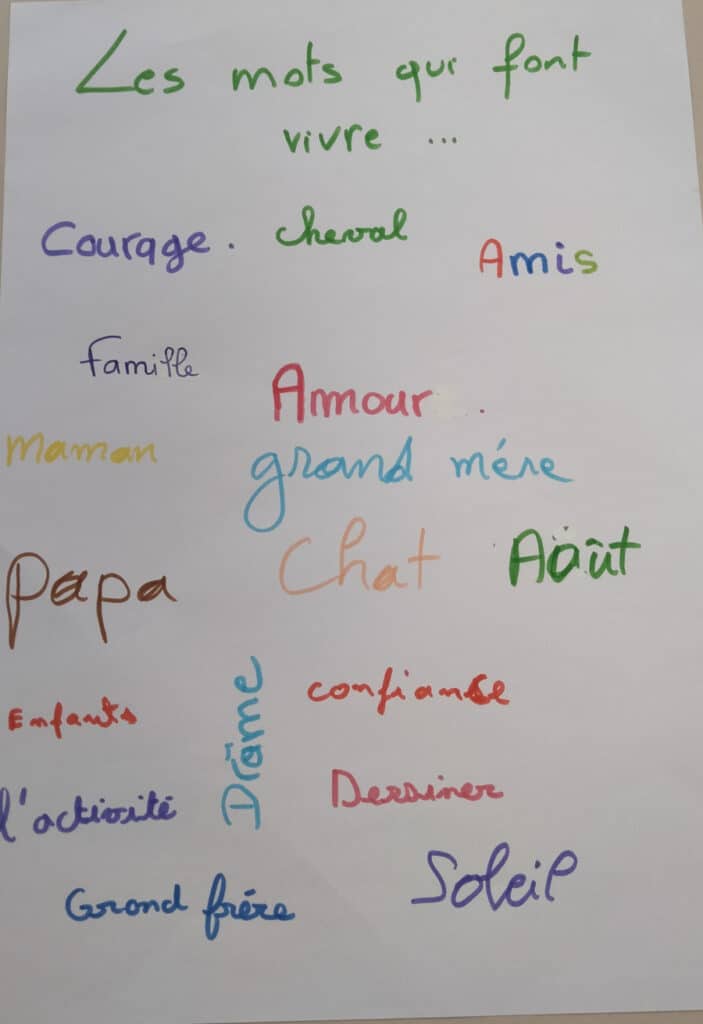 Les mots qui font
vivre ...
Courage. cheval
Amis
famille
Amour.
maman
grand mére
Chat Août
Papa
Enfants
confiance
Drôme
l'activité
Dessiner
Grand frére
Soleil